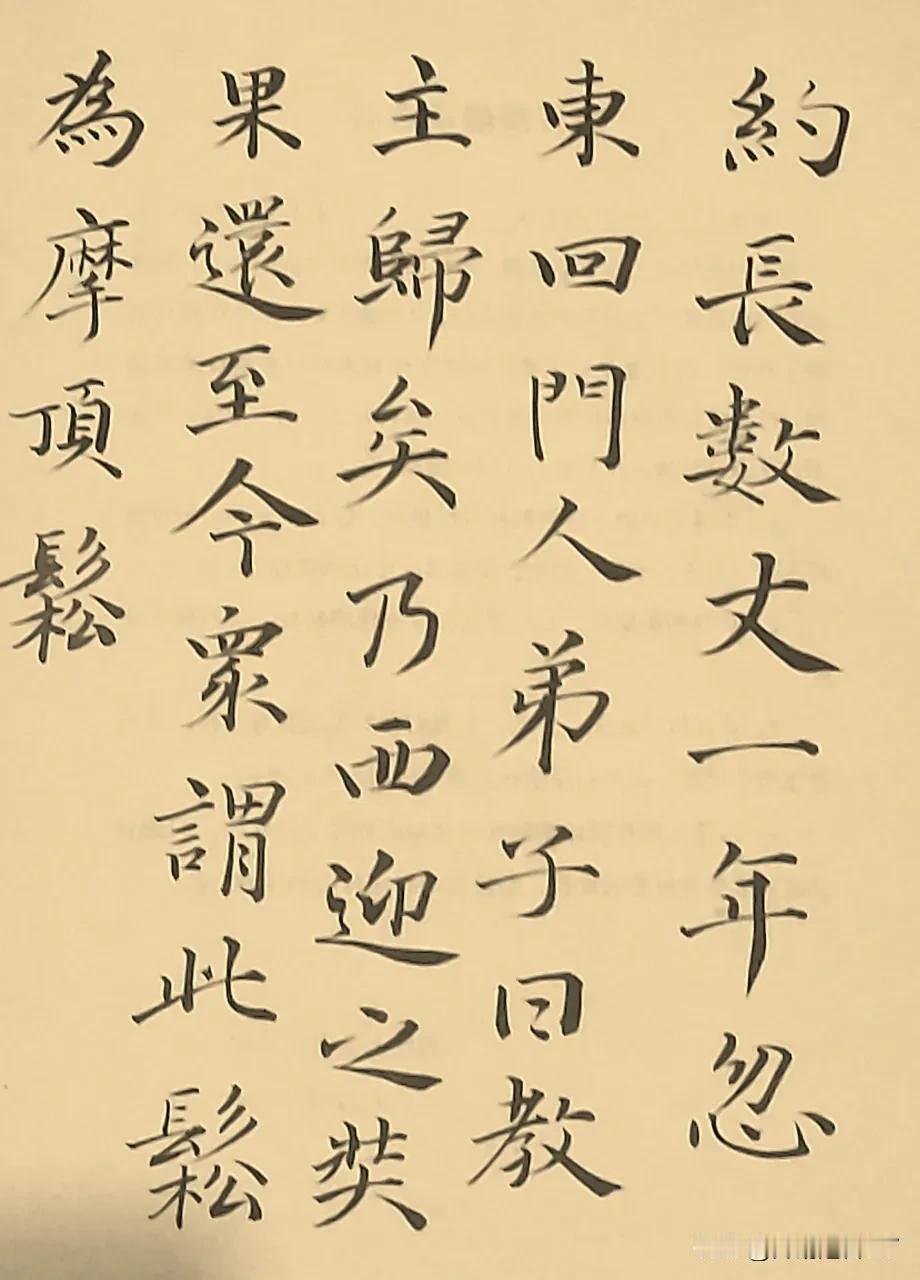 約長數丈一年忽
東回門人弟子曰教
主歸矣乃西迎之奘
果還至今眾謂此鬆
為摩頂鬆